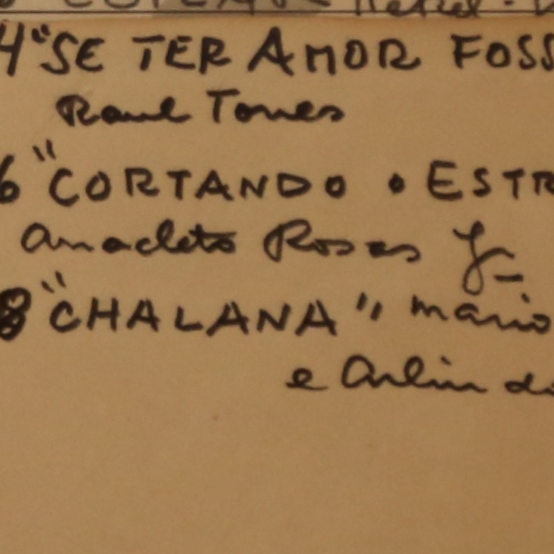 4 "SE TER AMOR FOSS
Raul Torres
6 "CORTANDO O ESTR
Anacleto Rosas Jr
8 "CHALANA" Mario
e Arlindo